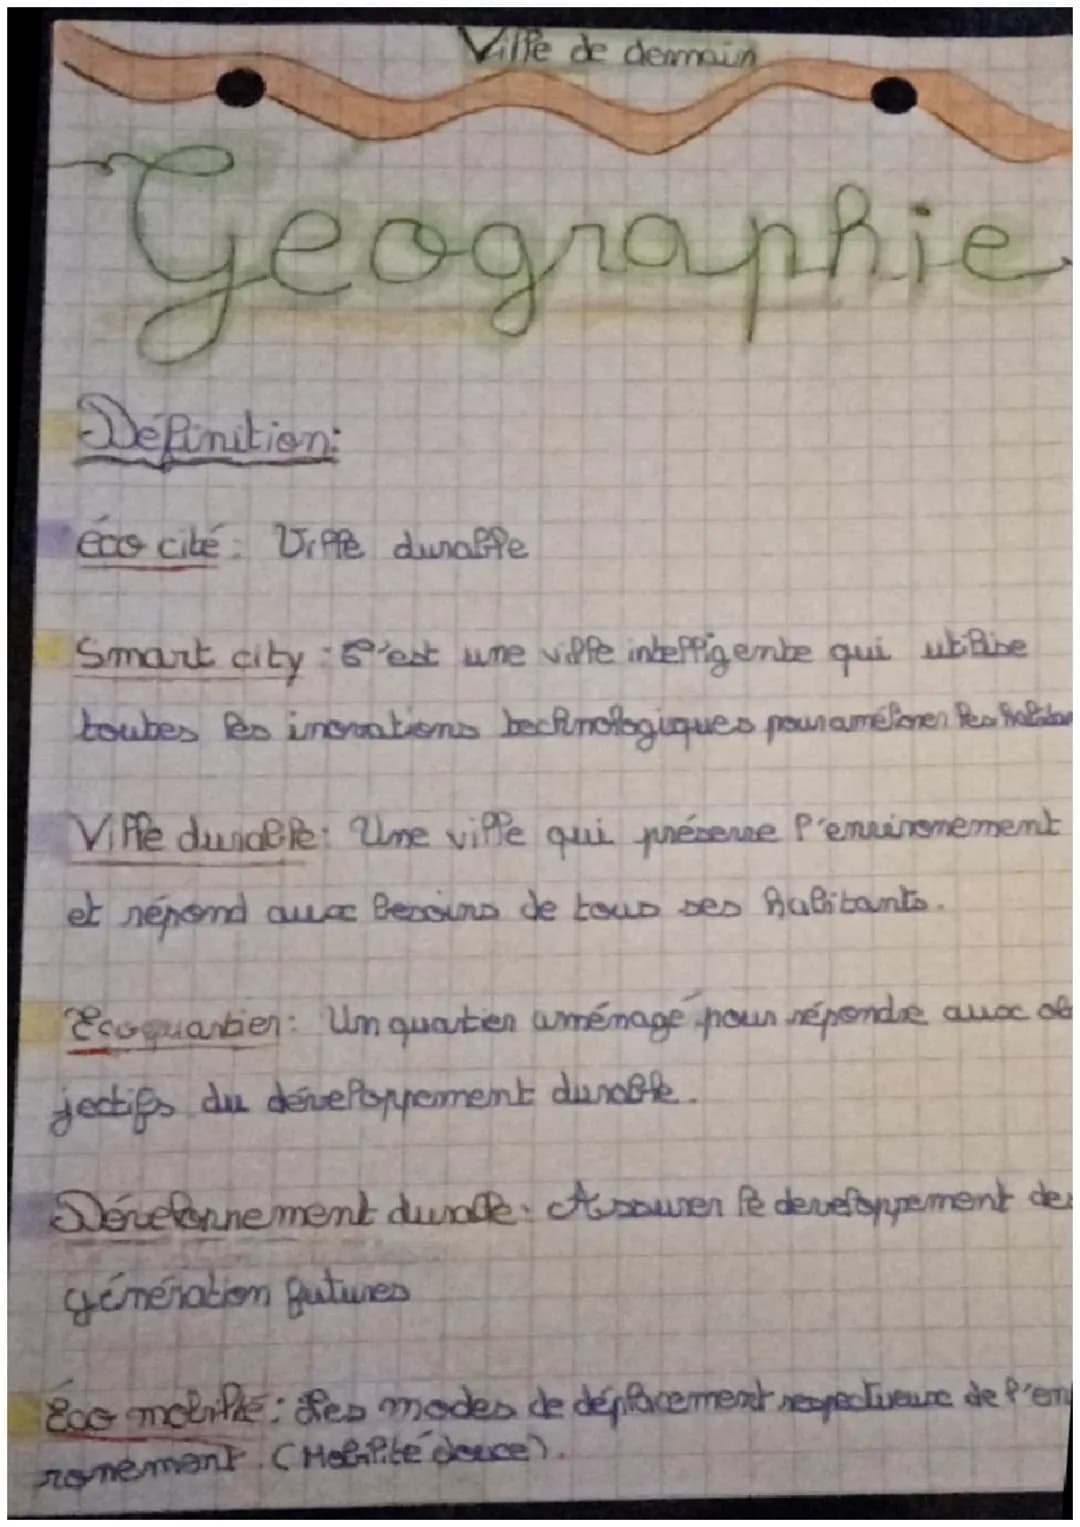 Ville de demain
Geographie
Définition:
éco cité: Ville durable
Smart city : C'est une ville intelligente qui utilise
toutes les inovations technologiques pour améliorer les habitan
Ville durable: Une ville qui préserve l'environement
et répond aux besoins de tous ses habitants.
Ecoquartier: Un quartier aménagé pour répondre aux ob
jectifs du développement durable.
Développement durable: Assurer le developpement des
génération futures
Éco mobilité: Les modes de déplacement respectueux de l'en
ronement (Mobilité douce).